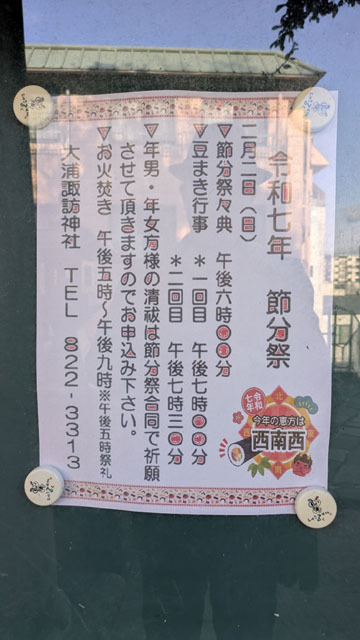 令和七年　節分祭
二月二日（日）
▽節分祭々典　午後六時〇〇分
▽豆まき行事　＊一回目　午後七時〇〇分
＊二回目　午後七時三〇分
▽年男・年女方様の清祓は節分祭合同で祈願
させて頂きますのでお申込み下さい。
▽お火焚き　午後五時～午後九時※午後五時祭礼
大浦諏訪神社　TEL　822-3313
令和七年
今年の恵方は
西南西
北
南